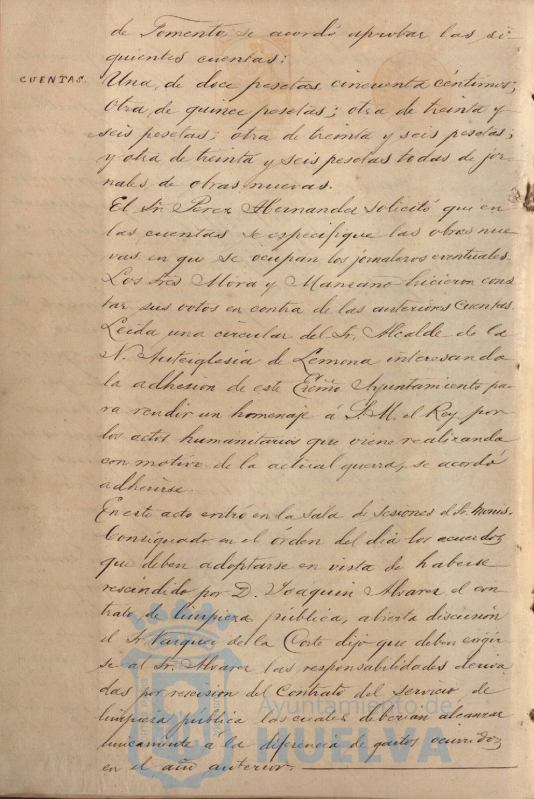 de Fomento se acordó aprobar las si-
guientes cuentas:
CUENTAS.
Una, de doce pesetas cincuenta céntimos;
otra, de quince pesetas; otra de treinta y
seis pesetas; otra de treinta y seis pesetas;
y otra de treinta y seis pesetas todas de jor-
nales de obras nuevas.
El Sr. Perez Hernandez solicitó que en
las cuentas se especifique las obras nue-
vas en que se ocupan los jornaleros eventuales.
Los Sres Mora y Manzano hicieron cons-
tar sus votos en contra de las anteriores cuentas.
Leida una circular del Sr. Alcalde de la
N. Anteiglesia de Lemona interesando
la adhesion de este Excmo Ayuntamiento pa-
ra rendir un homenaje á S.M. el Rey por
los actos humanitarios que viene realizando
con motivo de la actual guerra, se acordó
adherirse.
En este acto entró en la sala de sesiones el Sr.
Consignado en el órden del dia los acuerdos
que deben adoptarse en vista de haberse
rescindido por D. Joaquin Alvarez el con-
trato de limpieza pública, abierta discusión
el Sr. Vazquez de la Corte dijo que deben exigir-
se al Sr. Alvarez las responsabilidades deriva-
das por rescision del Contrato del servicio de
limpieza pública las cuales deberian alcanzar
unicamente a la diferencia de gastos ocurridos
en el año anterior.
Ayuntamiento de
HUELVA